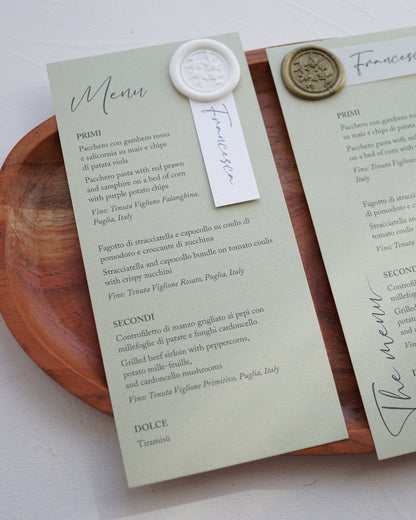 Menu
Francesca
PRIMI
Pacchero con gambero rosso
e salicornia su mais e chips
di patata viola
Pacchero pasta with red prawn
and samphire on a bed of corn
with purple potato chips
Vino: Tenuta Viglione Falanghina,
Puglia, Italy
Fagotto di stracciatella e capocollo su coulis di
pomodoro e croccante di zucchina
Stracciatella and capocollo bundle on tomato coulis
with crispy zucchini
Vino: Tenuta Viglione Rosato, Puglia, Italy
SECONDI
Controfiletto di manzo grigliato ai pepi con
millefoglie di patate e funghi cardoncello
Grilled beef sirloin with peppercorns,
potato mille-feuille,
and cardoncello mushrooms
Vino: Tenuta Viglione Primitivo, Puglia, Italy
DOLCE
Tiramisù
Francesca
PRIMI
Pacchero con gambero
su mais e chips di patata
Pacchero pasta with
on a bed of corn with
Fagotto di stracciatella
di pomodoro e croc
Stracciatella and
tomato coulis
Vino: Tenuta
SECONDI
Controfiletto
millefoglie
Grilled
potato
The menu